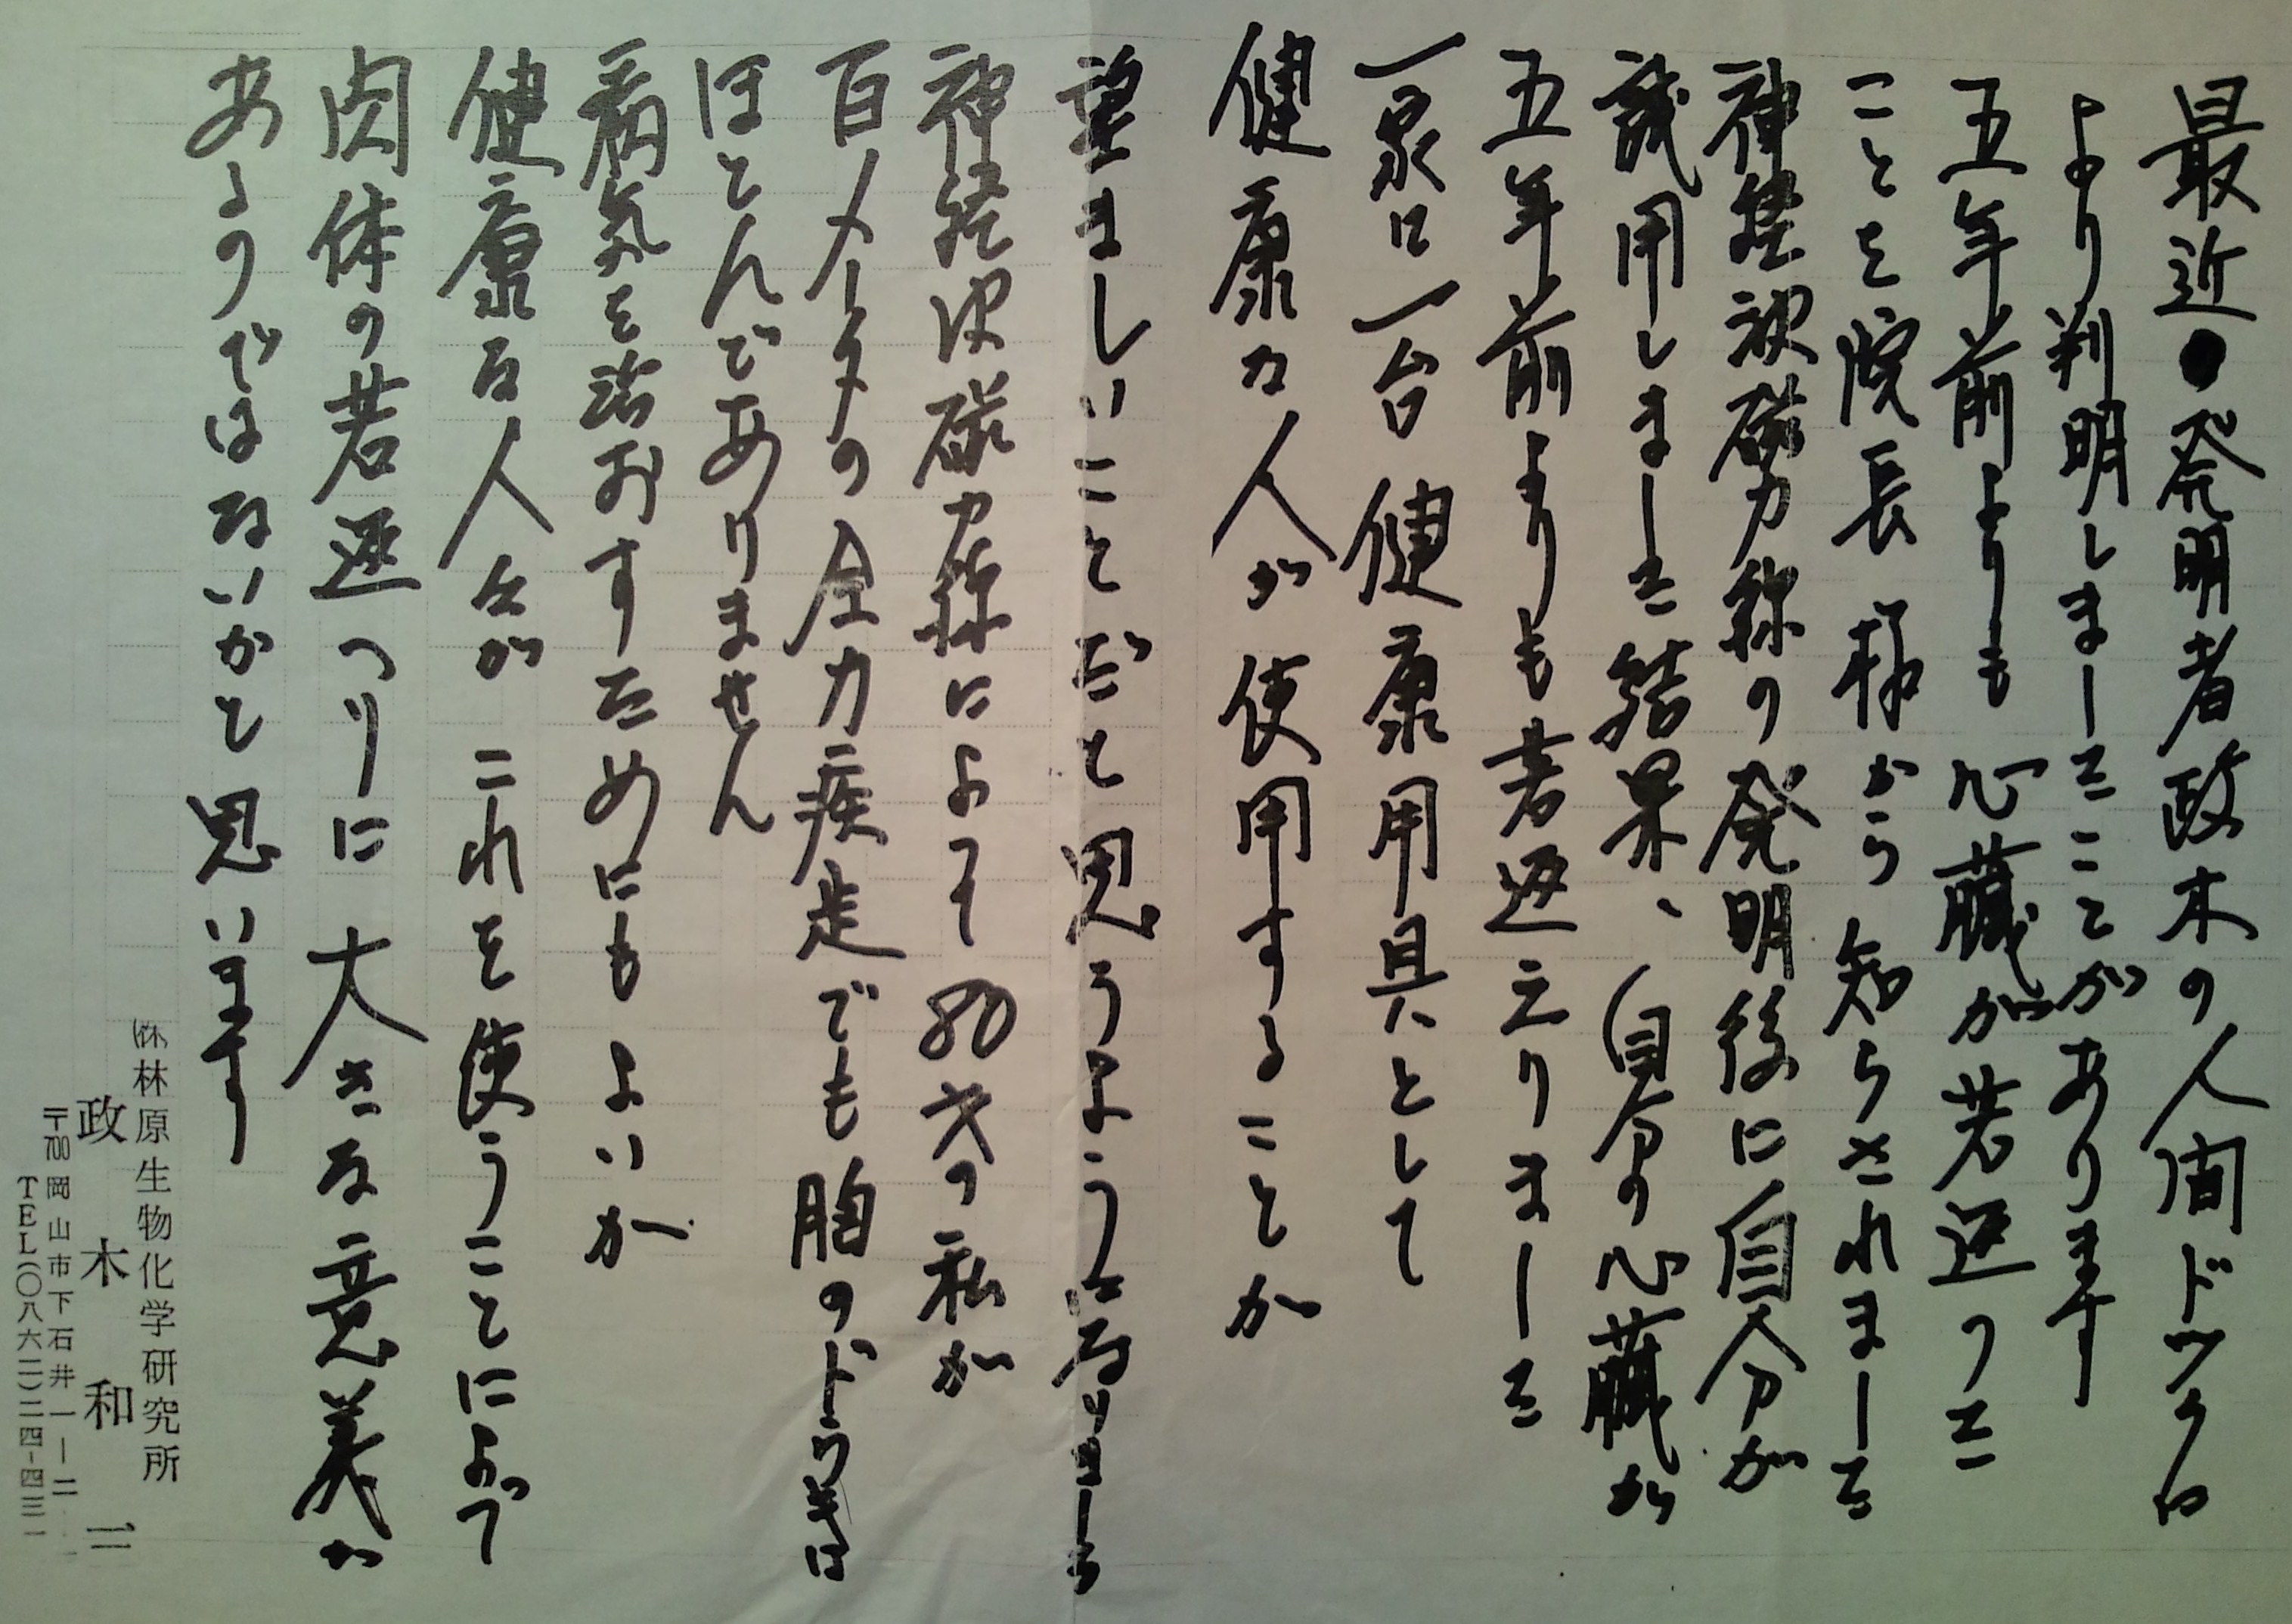 最近発明者政木の人間ドックに
より判明しましたことがあります
五年前よりも心臓が若返った
ことを院長様から知らされました
神経波磁力線の発明後に自分が
試用しました結果、自分の心臓が
五年前よりも若返えりました
一家に一台健康用具として
健康な人が使用することが
望ましいことだと思うようになりました
神経波磁力線によって80才の私が
百メータの全力疾走でも胸のドウキは
ほとんでありません
病気を治おすためにもよいが
健康な人々がこれを使うことによって
肉体の若返つりに大きな意義が
あるのではないかと思います
㈱林原生物化学研究所
政木和三
〒700岡山市下石井一ー二
TEL(〇八六二)二四ー四三一